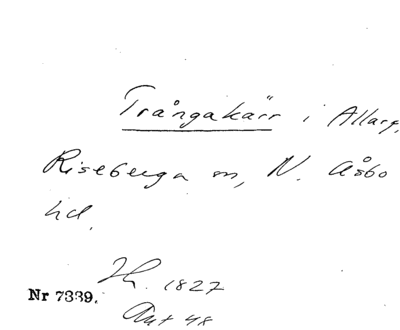 Trångakärr i Allarp,
Riseberga sn, N. Åsbo
hd.
Hr. 1827
Nr 7339.
Ant 48